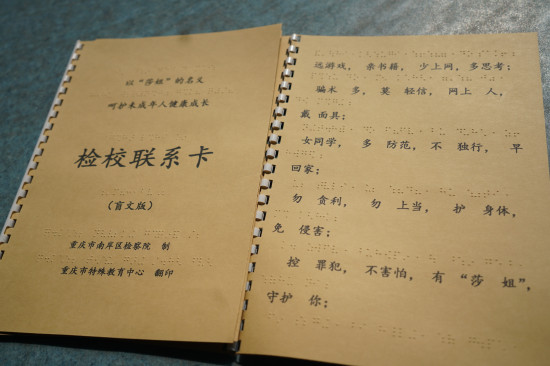 以“莎姐”的名义
呵护未成年人健康成长
检校联系卡
（盲文版）
重庆市南岸区检察院 制
重庆市特殊教育中心 翻印
远游戏，亲书籍，少上网，多思考；
骗术 多，莫 轻信，网上 人，
戴 面具；
女同学， 多 防范， 不 独行， 早
回家；
勿 贪利， 勿 上当， 护 身体，
免 侵害；
控 罪犯，不害怕，有 “莎 姐”，
守护 你；